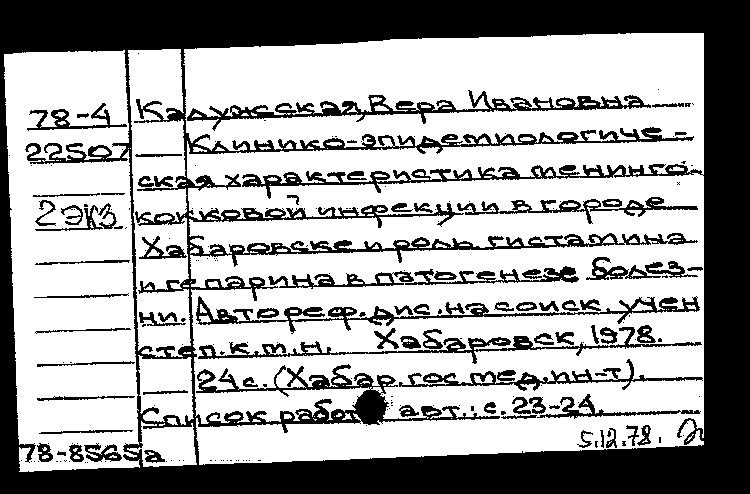 78-4 Калужская, Вера Ивановна
22507 Клинико-эпидемиологиче-
ская характеристика менинго-
2 экз кокковой инфекции в городе
Хабаровске и роль гистамина
и гепарина в патогенезе болез-
ни. Автореф. дис. на соиск. учен
степ. к.м.н. Хабаровск, 1978.
24 с. (Хабар. гос. мед. ин-т).
Список работ авт.: с. 23-24.
78-8565а 5.12.78.